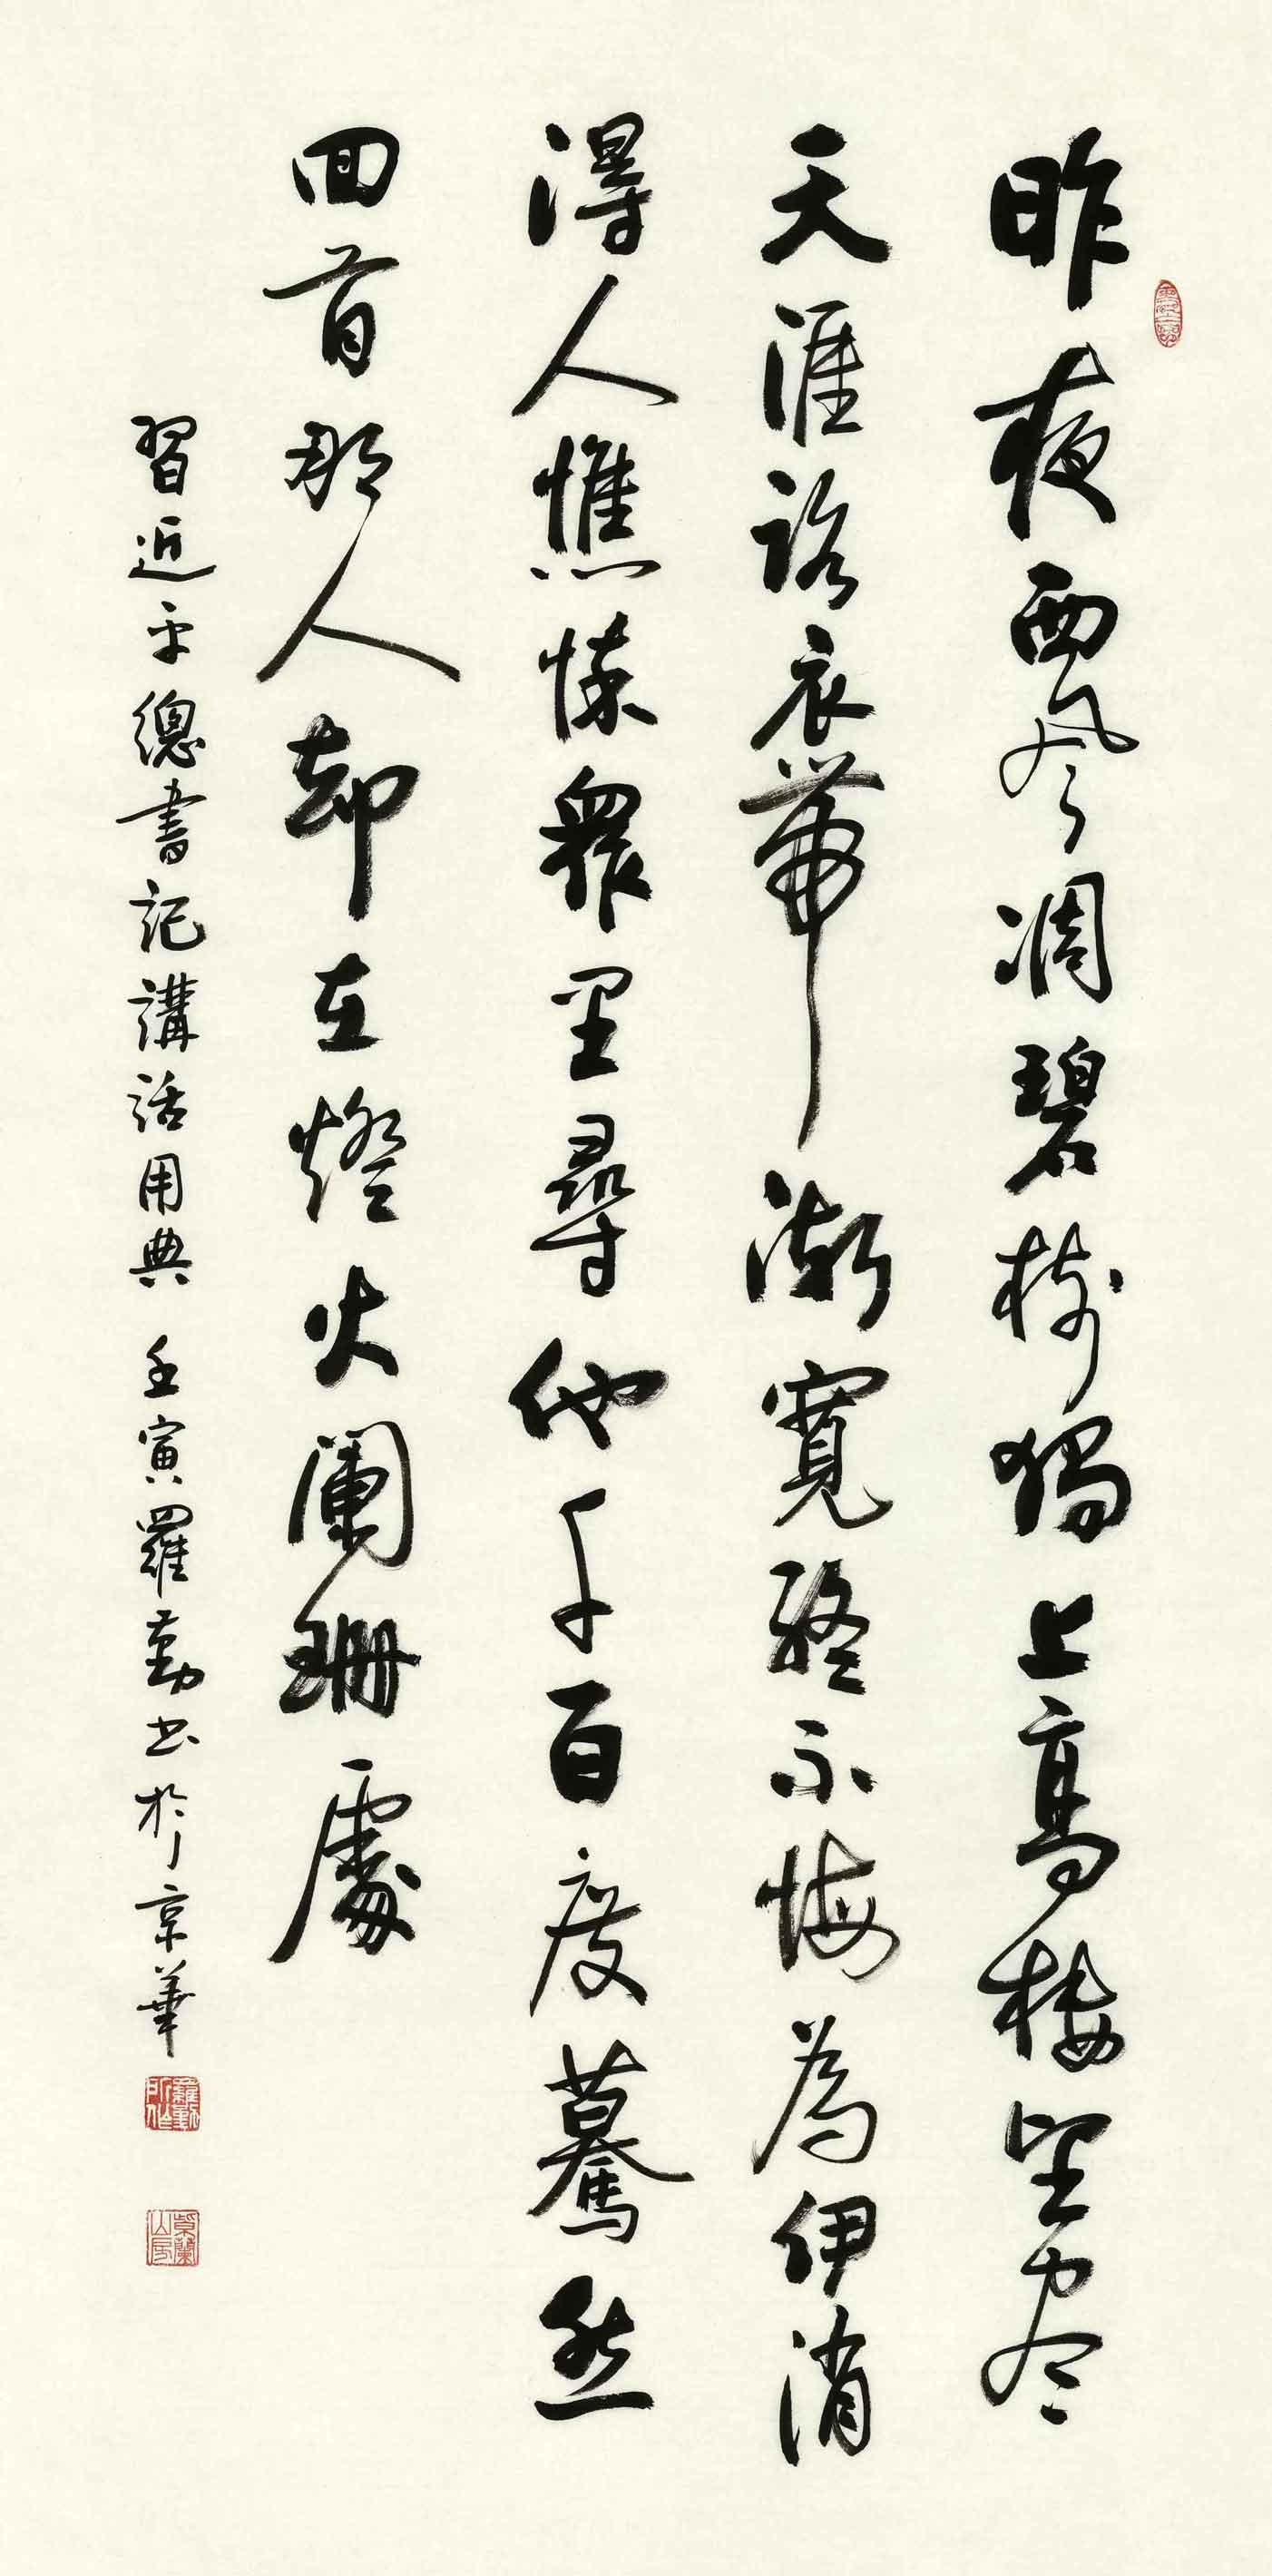 昨夜西风凋碧樹獨上高樓望尽
天涯路衣帶漸寬終不悔為伊消
得人憔悴眾里尋他千百度驀然
回首那人却在燈火闌珊處
習近平總書記講話用典 壬寅羅勤书於京華
羅勤所作